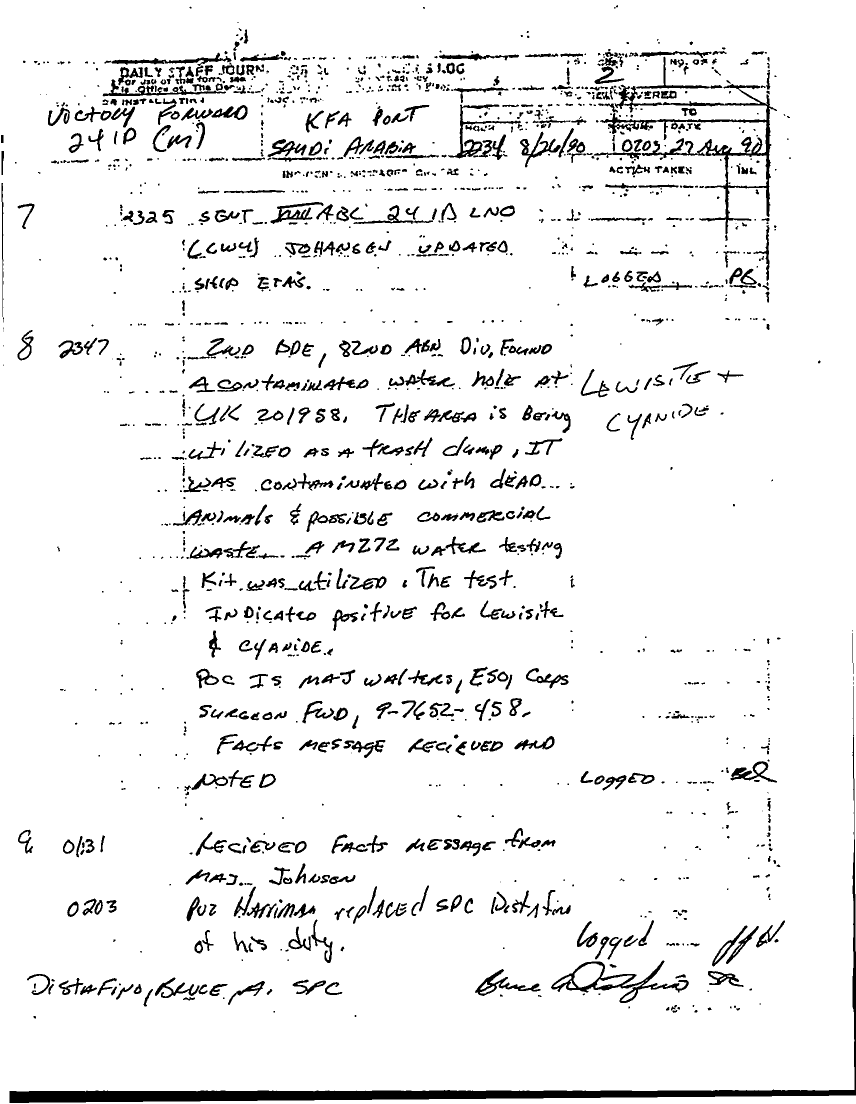 DAILY STAFF JOURN
PAGE 2
NO. OF
VICTORY FORWARD
24 ID (M)
KFA PORT
SAUDI ARABIA
PERIOD COVERED
TO
HOUR DATE
2234 8/26/90
HOUR DATE
0203 27 Aug 90
ACTION TAKEN INL
7 2325 SENT ABC 24 ID LNO
(CW4) JOHANSEN UPDATED
SHIP ETA'S. LOGGED PB
8 2347 2ND BDE, 82ND ABN DIV, FOUND
A CONTAMINATED WATER hole AT LEWISITE +
UK 201958. THE AREA is BEING CYANIDE.
utiLIZED AS A tRASH dump, IT
WAS CONTAMINATED with dEAD
ANIMAls & POSSIBLE COMMERCIAL
WASTE. A M272 WATER testing
Kit WAS utiLIZED. The test
INDICATED positIVE for Lewisite
& CYANIDE.
POC IS MAJ WALTERS, ESO, Corps
SURGEON FWD, 9-7652-458.
FACTS MESSAGE RECIEVED AND
NOTED LOGGED
9 0131 RECIEVED FACTS MESSAGE from
MAJ. Johnson
0203 PV2 HARRIMAN replACEd SPC Distafino
of his duty. logged
DISTAFINO, BRUCE A. SPC Bruce A Distafino SPC